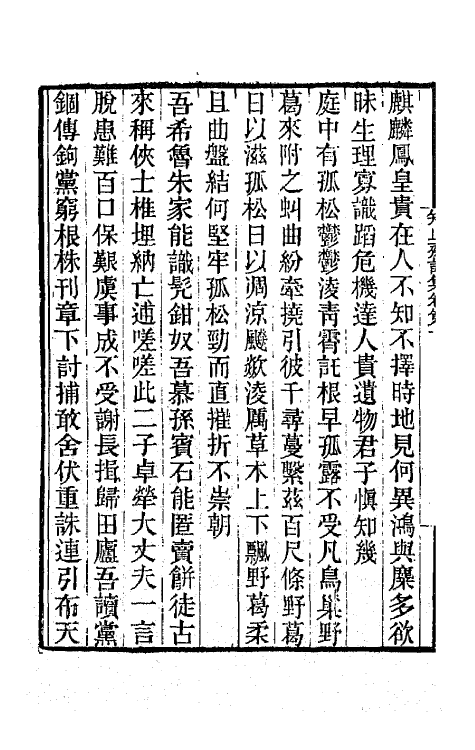 麒麟鳳皇貴在人不知不擇時地見何異鴻與麋多欲
昧生理寡識蹈危機達人貴遺物君子愼知幾
庭中有孤松鬱鬱淩靑霄託根早孤露不受凡鳥巢野
葛來附之虯曲紛牽撓引彼千尋蔓繫茲百尺條野葛
日以滋孤松日以凋涼飈歘淩厲草木上下飄野葛柔
且曲盤結何堅牢孤松勁而直摧折不崇朝
吾希魯朱家能識髡鉗奴吾慕孫賓石能匿賣餅徒古
來稱俠士椎埋納亡逋嗟嗟此二子卓犖大丈夫一言
脫患難百口保艱虞事成不受謝長揖歸田廬吾讀黨
錮傳鉤黨窮根株刊章下討捕敢舍伏重誅連引布天